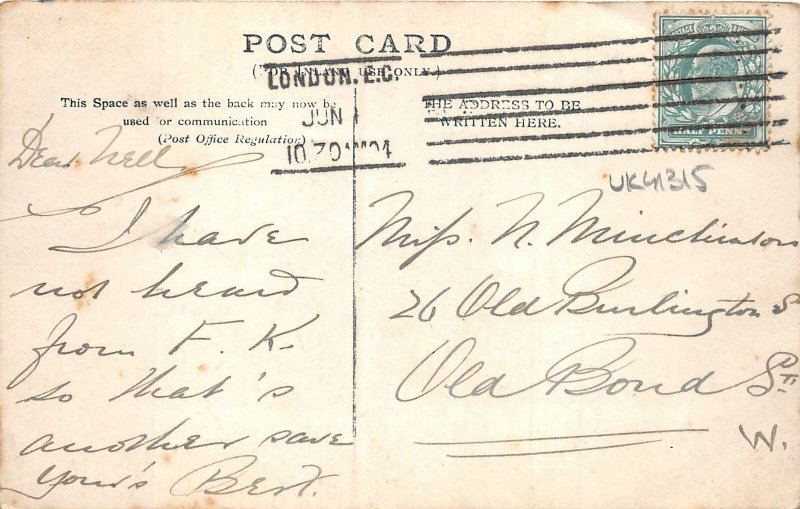 POST CARD
(FOR INLAND USE ONLY.)
This Space as well as the back may now be
used for communication
(Post Office Regulation)
THE ADDRESS TO BE
WRITTEN HERE.
LONDON. E.C.
JUN 1
10.20
HALF PENNY
UK41315
Dear Nell
I have
not heard
from F. K.
so that's
another save
your's Bert.
Miss. N. Minchinton
26 Old Burlington S
Old Bond St
W.